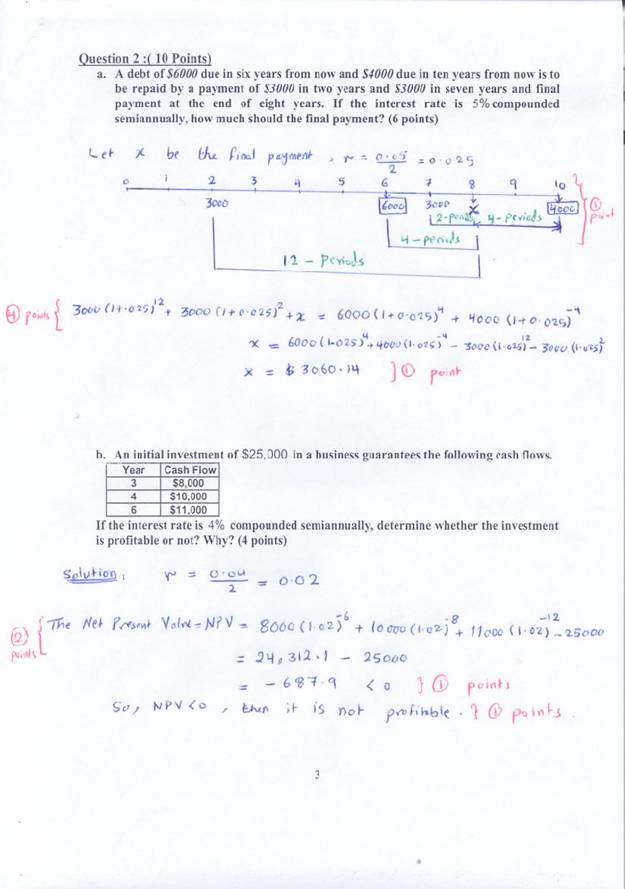 Question 2 :( 10 Points)
a. A debt of $6000 due in six years from now and $4000 due in ten years from now is to
be repaid by a payment of $3000 in two years and $3000 in seven years and final
payment at the end of eight years. If the interest rate is 5% compounded
semiannually, how much should the final payment? (6 points)
Let x be the final payment, r = 0.05/2 = 0.025
0 1 2 3 4 5 6 7 8 9 10
3000 6000 3000 x 4000 } ① point
2-periods 4-periods
4-periods
12-Periods
④ points { 3000(1+.025)^12 + 3000(1+0.025)^2 + x = 6000(1+0.025)^4 + 4000(1+0.025)^-4
x = 6000(1.025)^4 + 4000(1.025)^-4 - 3000(1.025)^12 - 3000(1.025)^2
x = $ 3060.14 } ① point
b. An initial investment of $25,000 in a business guarantees the following cash flows.
Year Cash Flow
3 $8,000
4 $10,000
6 $11,000
If the interest rate is 4% compounded semiannually, determine whether the investment
is profitable or not? Why? (4 points)
Solution: r = 0.04/2 = 0.02
② points { The Net Present Value = NPV = 8000(1.02)^-6 + 10000(1.02)^-8 + 11000(1.02)^-12 - 25000
= 24,312.1 - 25000
= - 687.9 < 0 } ① points
So, NPV < 0, then it is not profitable. } ① points.
3